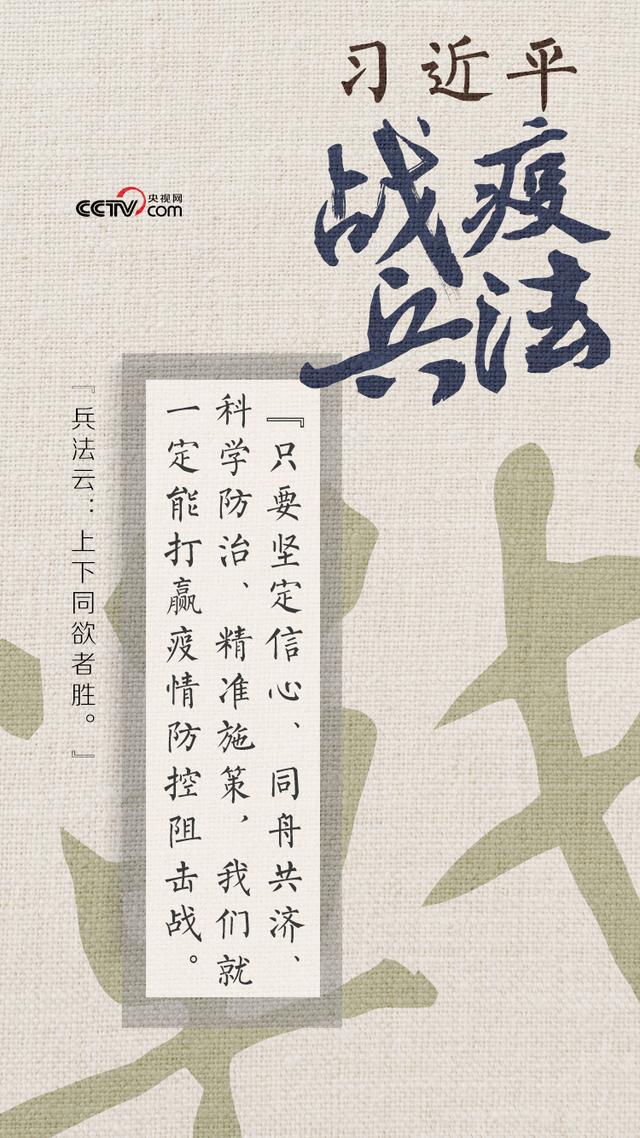 习近平
战疫
兵法
CCTV.com 央视网
『只要坚定信心、同舟共济、
科学防治、精准施策，我们就
一定能打赢疫情防控阻击战。
『兵法云：上下同欲者胜。』